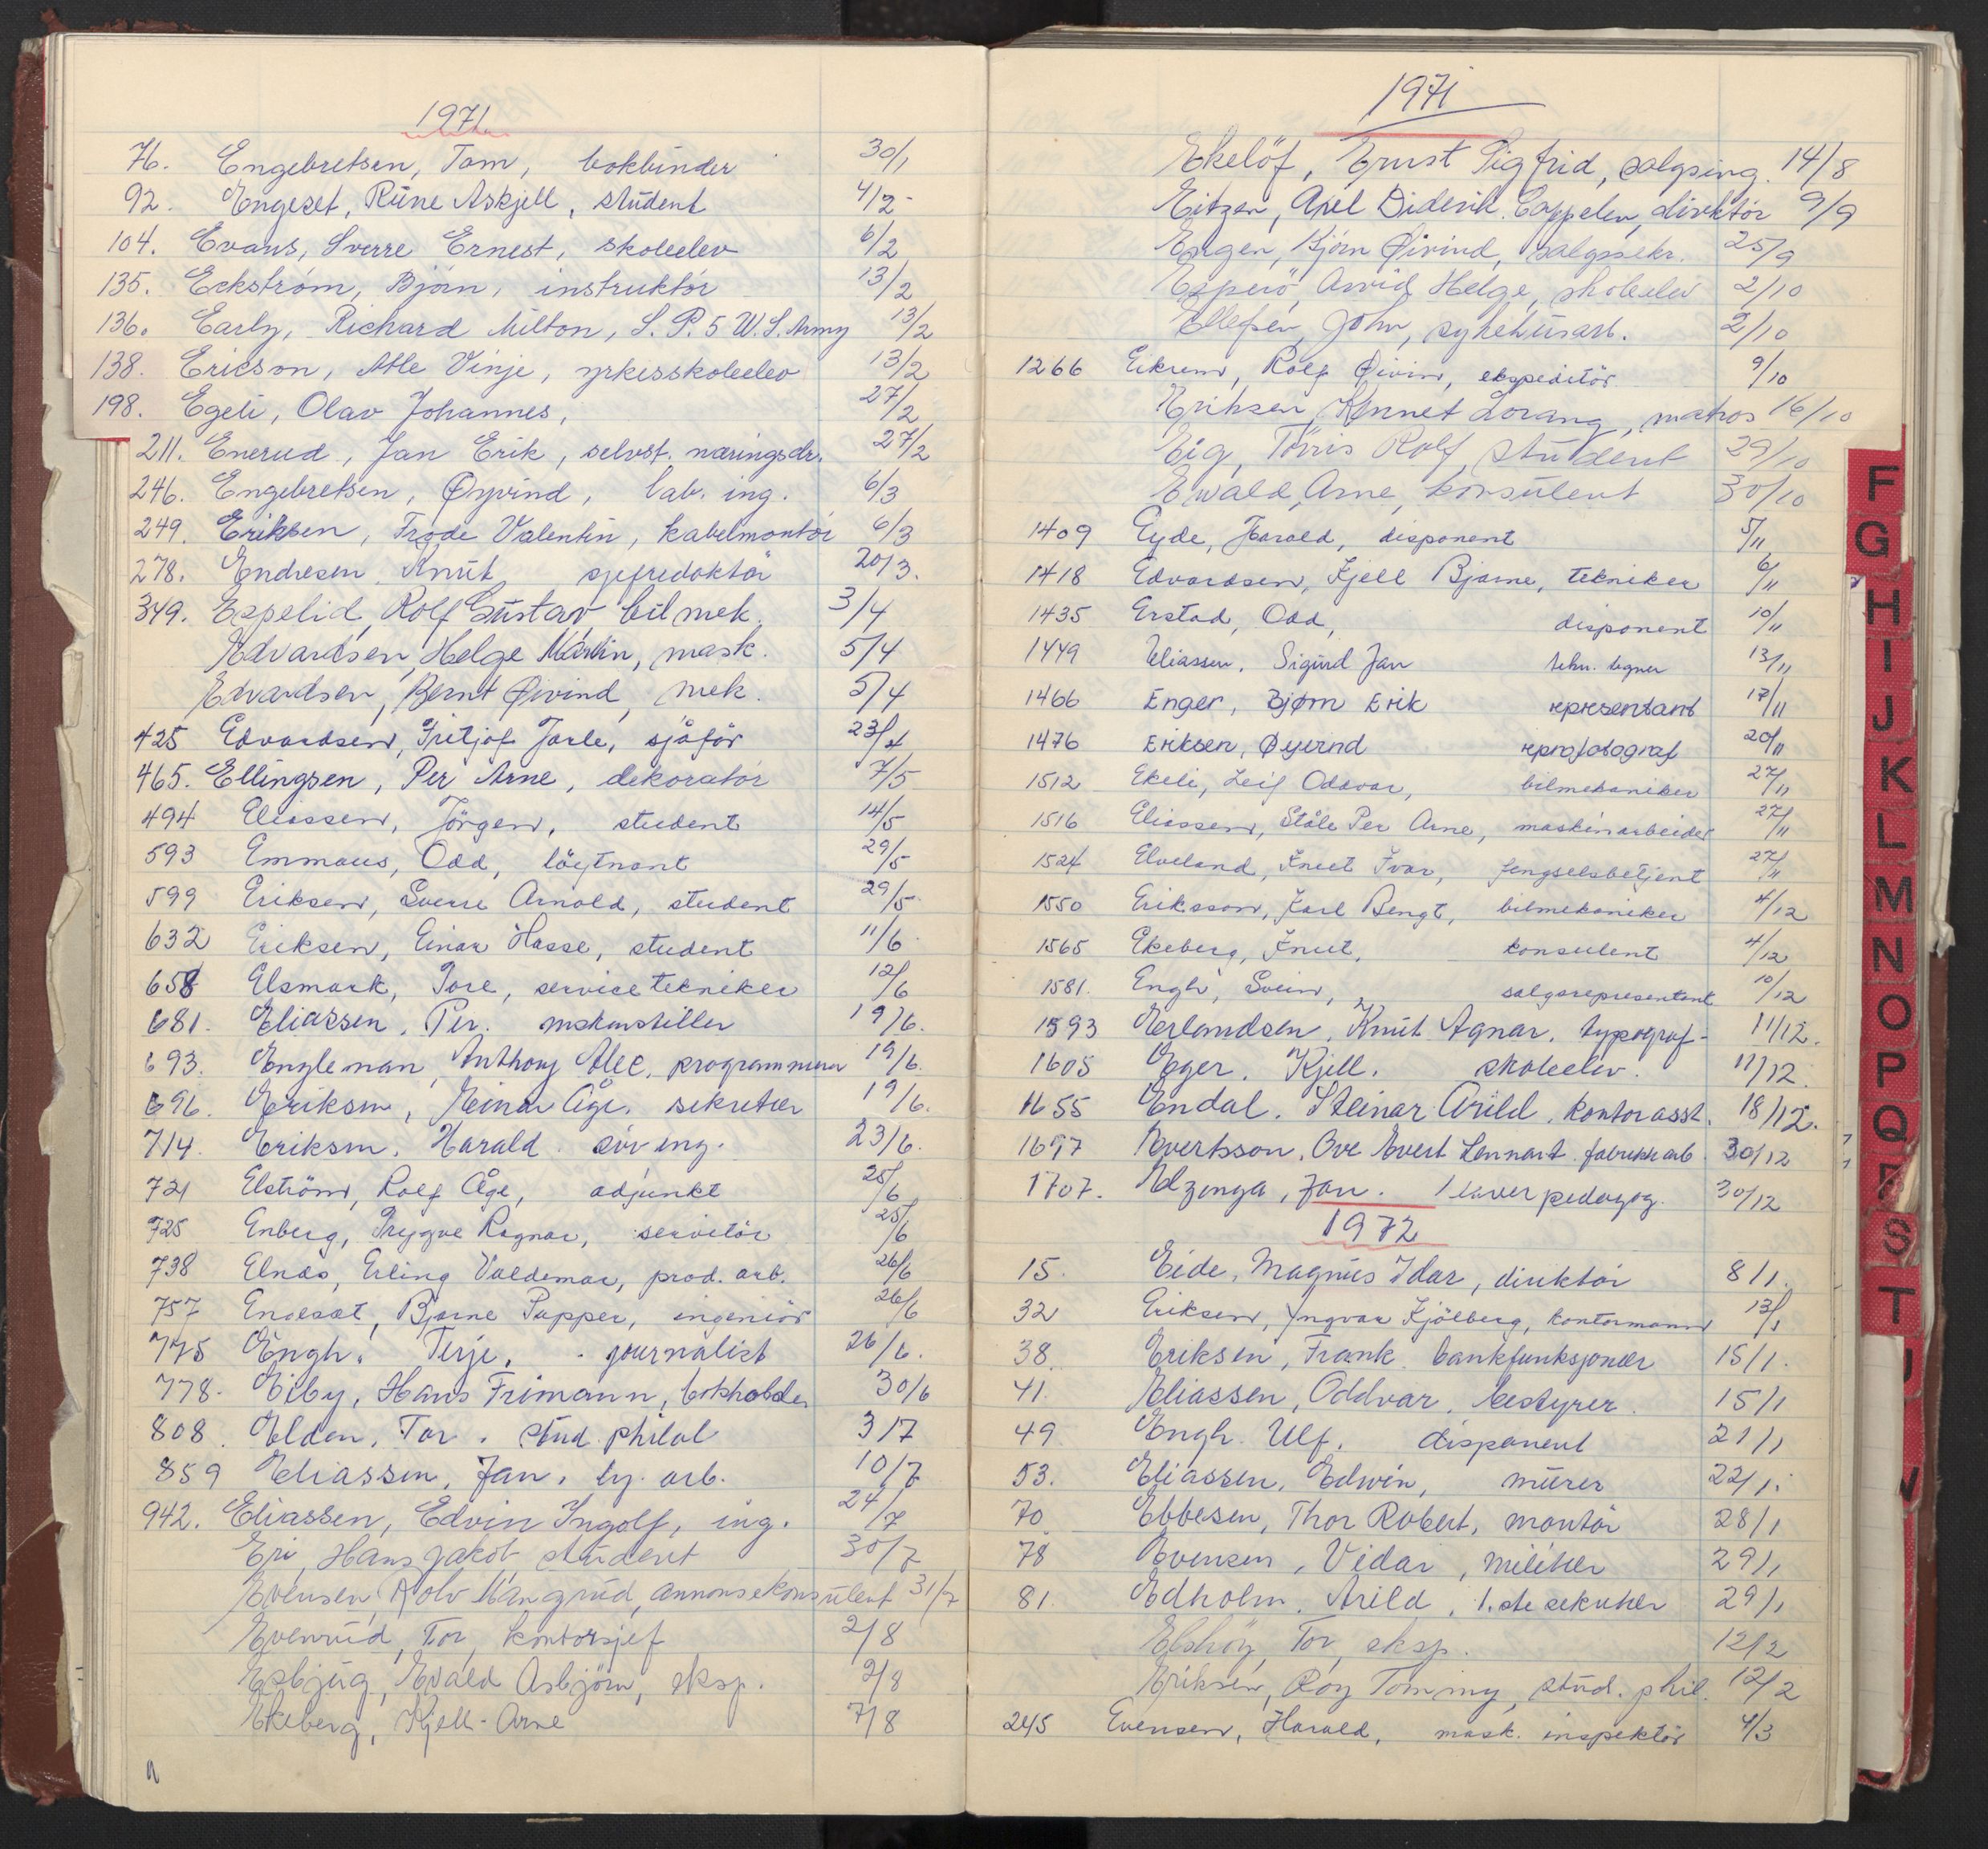 1971
76. Engebretsen, Tom, bokbinder 30/1
92. Engeset, Rune Askjell, student 4/2
104. Evans, Sverre Ernest, skoleelev 6/2
135. Eckström, Björn, instruktör 13/2
136. Early, Richard Milton, S.P.5 U.S. Army 13/2
138. Ericson, Atle Vinje, yrkesskoleelev 13/2
198. Egeli, Olav Johannes, 27/2
211. Enerud, Jan Erik, selvst. næringsdr. 27/2
246. Engebretsen, Øyvind, lab. ing. 6/3
249. Eriksen, Frode Valentin, kabelmontör 6/3
278. Endresen Knut sjefredaktör 20/3.
349. Espelid, Rolf Gustav, bilmek. 3/4
Edvardsen, Helge Martin, mask. 5/4
Edvardsen, Bernt Øivind, mek. 5/4
425 Edvardsen, Fritjof Jarle, sjåför 23/4
465. Ellingsen, Per Arne, dekoratör 7/5
494 Eliassen, Jörgen, student 14/5
593 Emmaus, Odd, löytnant 29/5
599 Eriksen, Sverre Arnold, student 29/5
632 Eriksen, Einar Hasse, student 11/6
658 Elsmark, Tore, servicetekniker 12/6
681. Eliassen, Per. maskinstiller 19/6.
693. Engleman, Anthony Alec, programmerer 19/6.
696. Eriksen, Einar Åge. sekretær 19/6.
714. Eriksen, Harald. siv.ing. 23/6.
721 Elström, Rolf Åge, adjunkt 25/6
725 Enberg, Trygve Ragnar, servitör 25/6
738 Elnæs, Erling Valdemar, prod. arb. 26/6
757 Engesæt, Bjarne Papper, ingeniör 26/6
775 Engh, Terje, journalist 26/6.
778. Eiby, Hans Frimann, bokholder 30/6
808. Elden, Tor. stud. philol 3/7
859 Eliassen, Jan, by. arb. 10/7
942. Eliassen, Edvin Ingolf, ing. 24/7
Eri, Hans Jakob, student 30/7
Evensen, Rolv Mangrud, annonsekonsulent 31/7
Evenrud, Tor, kontorsjef 2/8
Esbjug, Evald Asbjörn, eksp. 2/8
Ekeberg, Kjell-Arne 7/8
1971
Ekelöf, Ernst Sigfrid, salgsing. 14/8
Eitzen, Axel Diderik Cappelen, direktör 9/9
Engen, Björn Øivind, salgssekr. 25/9
Esperö, Arvid Helge, skoleelev 2/10
Ellefsen, John, sykehusarb. 2/10
1266 Eikrem, Rolf Øivin, ekspeditör 9/10
Eriksen, Kennet Lorang, matros 16/10
Eig, Törris Rolf, student 29/10
Ewald, Arne, konsulent 30/10
1409 Eyde, Harald, disponent 5/11
1418 Edvardsen, Kjell Bjarne, tekniker 6/11
1435 Erstad, Odd, disponent 10/11
1449 Eliassen, Sigurd Jan tekn. tegner 13/11
1466 Enger, Bjørn Erik representant 17/11
1476 Eriksen, Øyvind reprofotograf 20/11
1512 Ekeli, Leif Oddvar, bilmekaniker 27/11
1516 Eliassen, Ståle Per Arne, maskinarbeider 27/11
1524 Elveland, Knut Ivar, fengselsbetjent 27/11
1550 Eriksson, Karl Bengt, bilmekaniker 4/12
1565 Ekeberg, Knut, konsulent 4/12
1581. Engh, Svein, salgsrepresentant 10/12
1593 Erlandsen, Knut Agnar, typograf 11/12.
1605 Eger, Kjell, skoleelev. 11/12.
1655 Endal, Steinar Arild, kontorasst. 18/12.
1697 Evertsson, Ove Evert Lennart. fabrikkarb 30/12
1707. Elzenga, Jan. klaverpedagog. 30/12
1972
15. Eide, Magnus Idar, direktör 8/1.
32 Eriksen, Yngvar Kjölberg, kontormann 13/1
38. Eriksen, Frank bankfunksjonær 15/1.
41. Eliassen, Oddvar, bestyrer. 15/1
49. Engh, Ulf, disponent 21/1
53. Eliassen, Edwin, murer 22/1.
70 Ebbesen, Thor Robert, montör 28/1
78 Evensen, Vidar, militær 29/1
81. Edholm, Arild, 1.ste sekretær 29/1
Elshöy, Tor, eksp. 12/2
Eriksen, Roy Tommy, stud. phil. 12/2
245 Evensen, Harald, mask. inspektör 4/3
F
G
H
I
J
K
L
M
N
O
P
Q
R
S
T